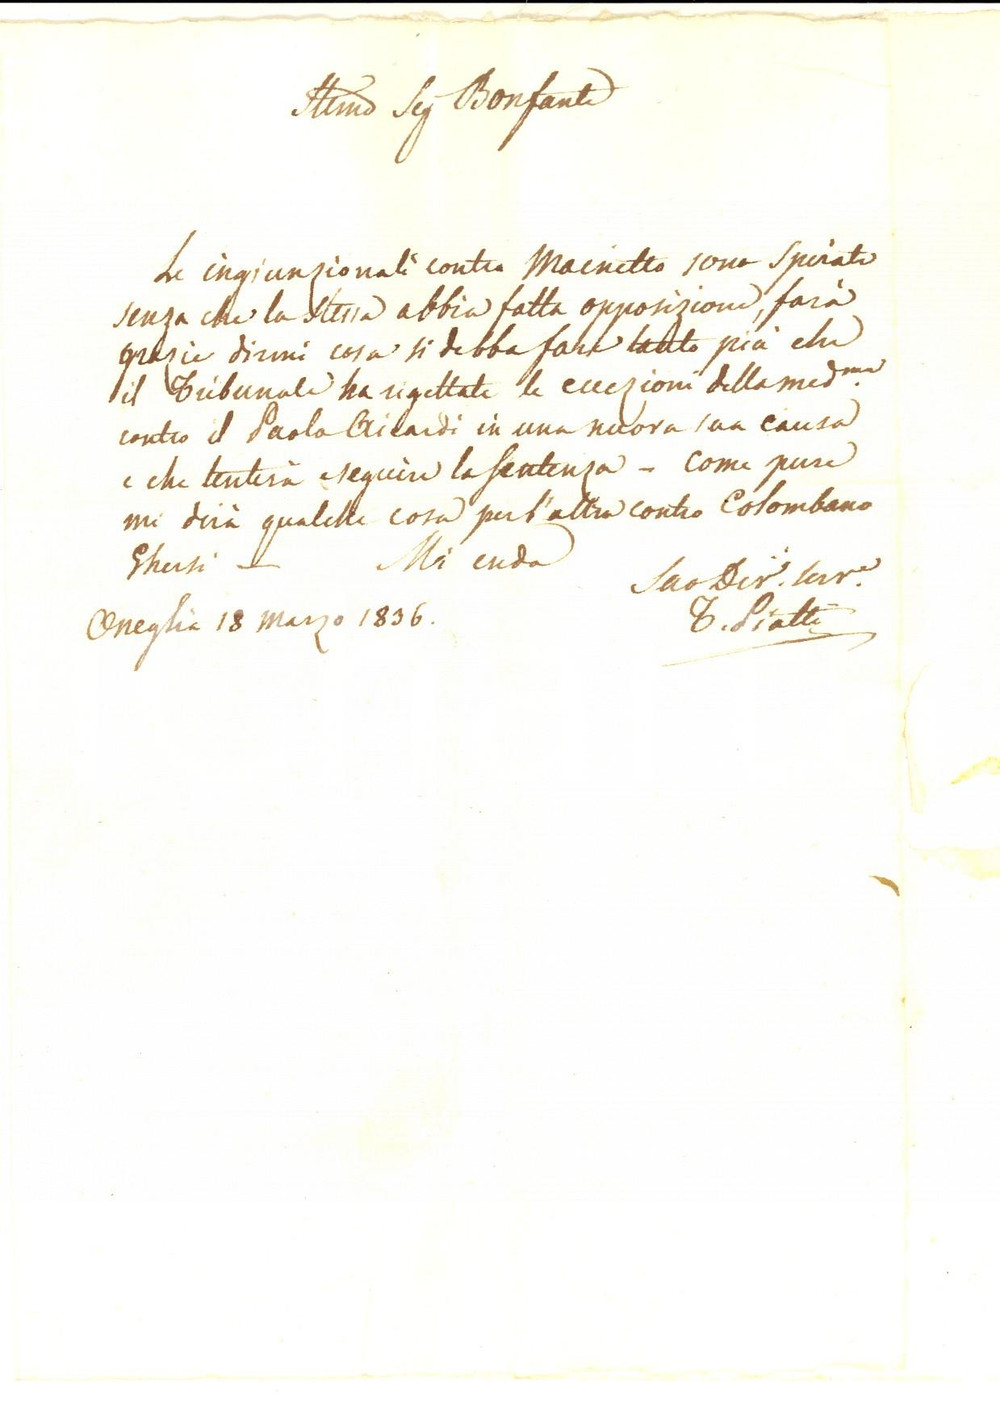 Ill.mo Sig Bonfante
Le ingiunzionali contro Mainetto sono spirate
senza che la stessa abbia fatta opposizione, farà
grazie dirmi cosa si debba fare tanto più che
il Tribunale ha rigettate le eccezioni della med.ma
contro il Paolo Ricardi in una nuova sua causa
e che tenterà eseguire la sentenza – come pure
mi dirà qualche cosa per l'altra contro Colombano
Ghersi — Mi creda
Suo Div.º serv.e
Oneglia 18 Marzo 1836.
T. Piatti